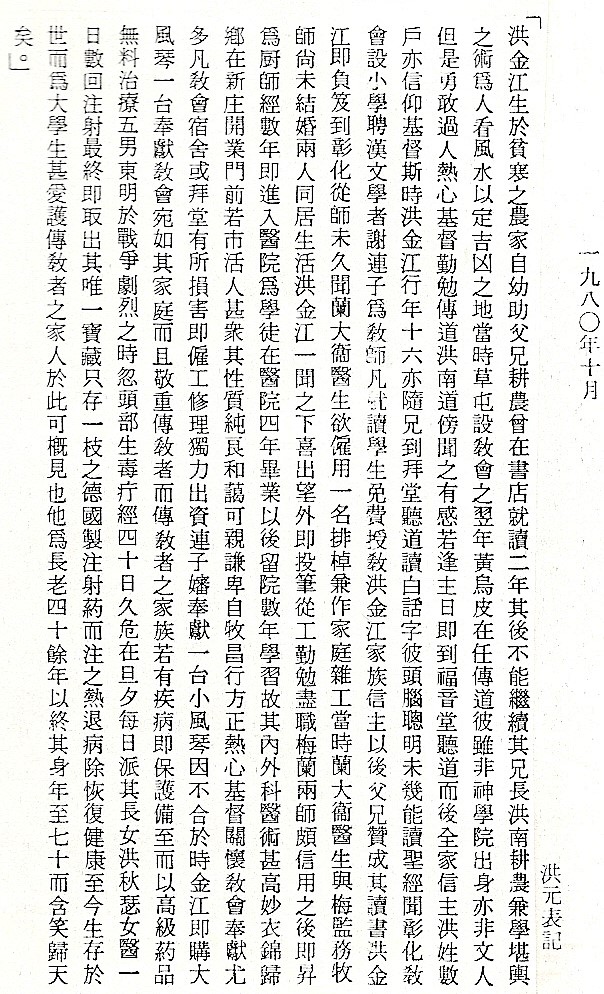 一九八〇年十月
洪元表記
「洪金江生於貧寒之農家自幼助父兄耕農曾在書店就讀二年其後不能繼續其兄長洪南耕農兼學堪輿
之術為人看風水以定吉凶之地當時草屯設教會之翌年黃烏皮在任傳道彼雖非神學院出身亦非文人
但是勇敢過人熱心基督勤勉傳道洪南道傍聞之有感若逢主日即到福音堂聽道而後全家信主洪姓數
戶亦信仰基督斯時洪金江行年十六亦隨兄到拜堂聽道讀白話字彼頭腦聰明未幾能讀聖經聞彰化教
會設小學聘漢文學者謝連子為教師凡就讀學生免費授教洪金江家族信主以後父兄贊成其讀書洪金
江即負笈到彰化從師未久聞蘭大衞醫生欲僱用一名排棹兼作家庭雜工當時蘭大衞醫生與梅監務牧
師尚未結婚兩人同居生活洪金江一聞之下喜出望外即投筆從工勤勉盡職梅蘭兩師頗信用之後即昇
為厨師經數年即進入醫院為學徒在醫院四年畢業以後留院數年學習故其內外科醫術甚高妙衣錦歸
鄉在新庄開業門前若市活人甚衆其性質純良和藹可親謙卑自牧品行方正熱心基督關懷教會奉獻尤
多凡教會宿舍或拜堂有所損害即僱工修理獨力出資連子嬸奉獻一台小風琴因不合於時金江即購大
風琴一台奉獻教會宛如其家庭而且敬重傳教者而傳教者之家族若有疾病即保護備至而以高級葯品
無料治療五男東明於戰爭劇烈之時忽頭部生毒疔經四十日久危在旦夕每日派其長女洪秋瑟女醫一
日數回注射最終即取出其唯一寶藏只存一枝之德國製注射葯而注之熱退病除恢復健康至今生存於
世而為大學生甚愛護傳教者之家人於此可概見也他為長老四十餘年以終其身年至七十而含笑歸天
矣。」